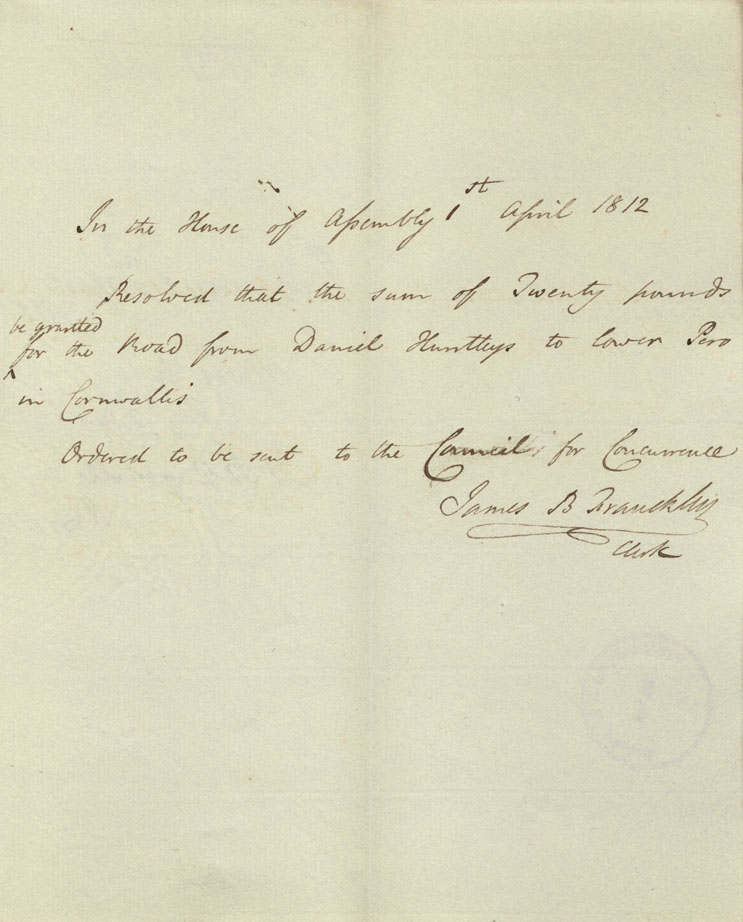 In the House of Assembly 1st April 1812
Resolved that the sum of Twenty pounds
be granted
for the Road from Daniel Huntleys to lower Pero
in Cornwallis
Ordered to be sent to the Council for Concurrence
James B Francklin
Clerk